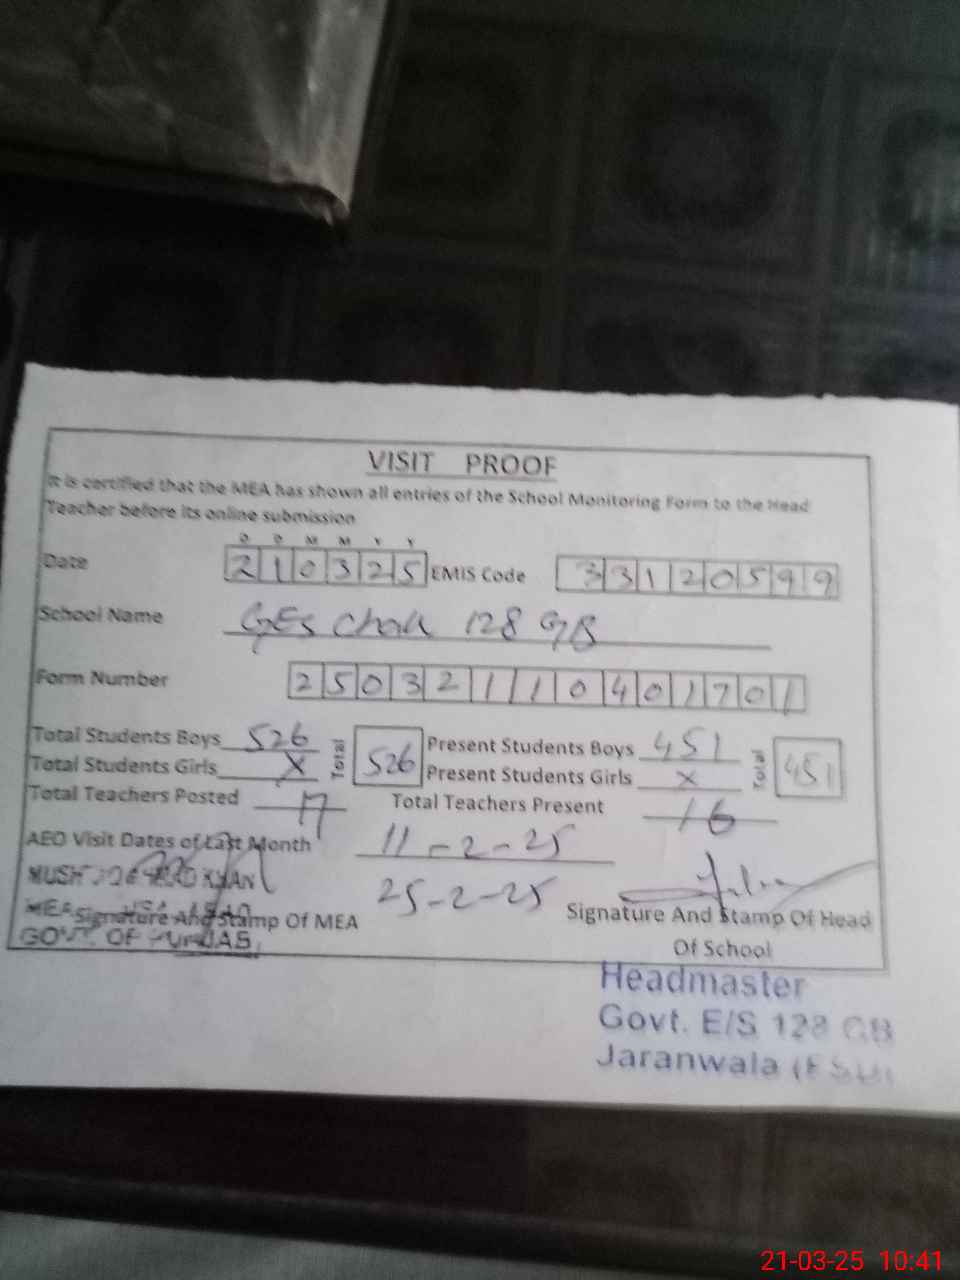 VISIT PROOF
It is certified that the MEA has shown all entries of the School Monitoring Form to the Head
Teacher before its online submission
D D M M Y Y
Date 210325 EMIS Code 33120599
School Name GES Chak 128 GB
Form Number 250321110401701
Total Students Boys 526 Total 526 Present Students Boys 451 Total 451
Total Students Girls X Present Students Girls X
Total Teachers Posted 17 Total Teachers Present 16
AEO Visit Dates of Last Month 11-2-25
25-2-25
KHAN
MEA
Signature And Stamp Of MEA
GOVT. OF PUNJAB
Signature And Stamp Of Head
Of School
Headmaster
Govt. E/S 128 GB
Jaranwala (FSD)
21-03-25 10:41